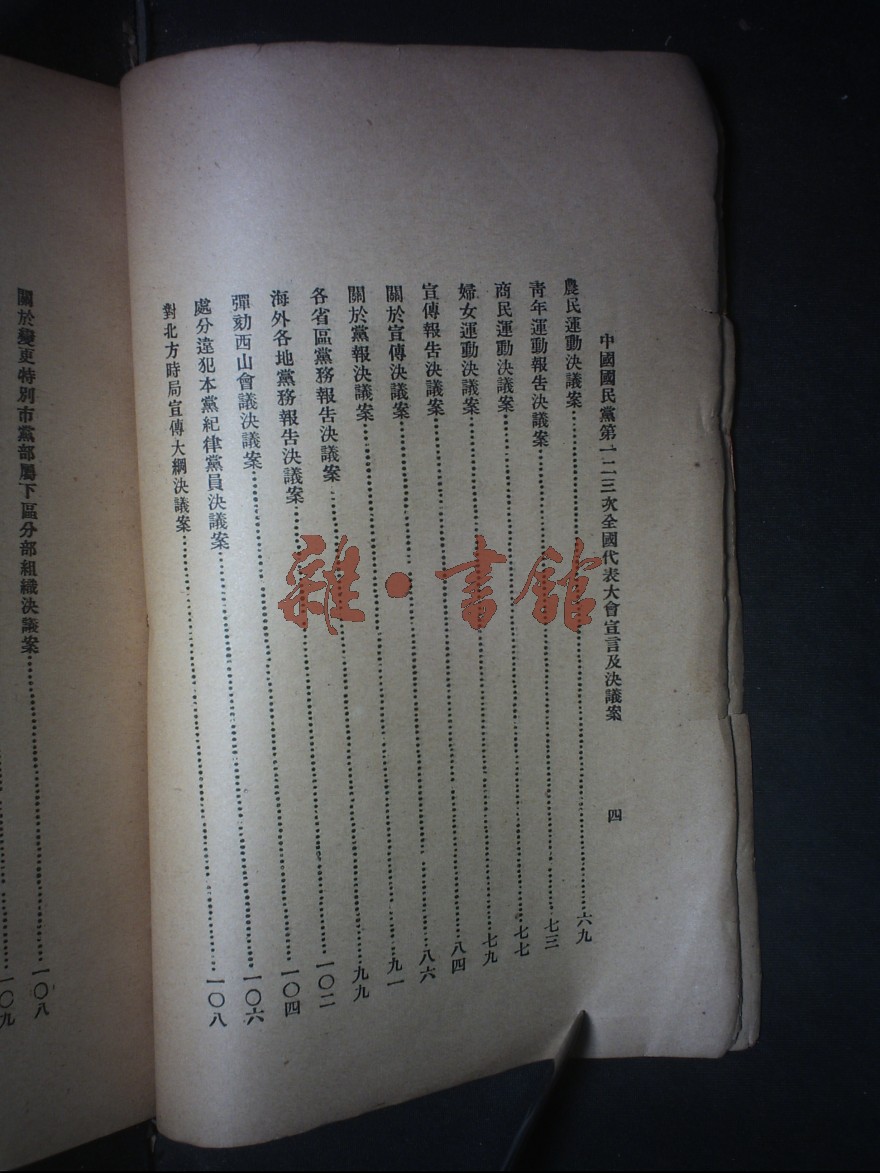 中國國民黨第一二三次全國代表大會宣言及決議案 四
農民運動決議案……六九
青年運動報告決議案……七三
商民運動決議案……七七
婦女運動決議案……七九
宣傳報告決議案……八四
關於宣傳決議案……八六
關於黨報決議案……九一
各省區黨務報告決議案……九九
海外各地黨務報告決議案……一〇二
彈劾西山會議決議案……一〇四
處分違犯本黨紀律黨員決議案……一〇六
對北方時局宣傳大綱決議案……一〇八
關於變更特別市黨部屬下區分部組織決議案……一〇八
一〇九
雜·書館